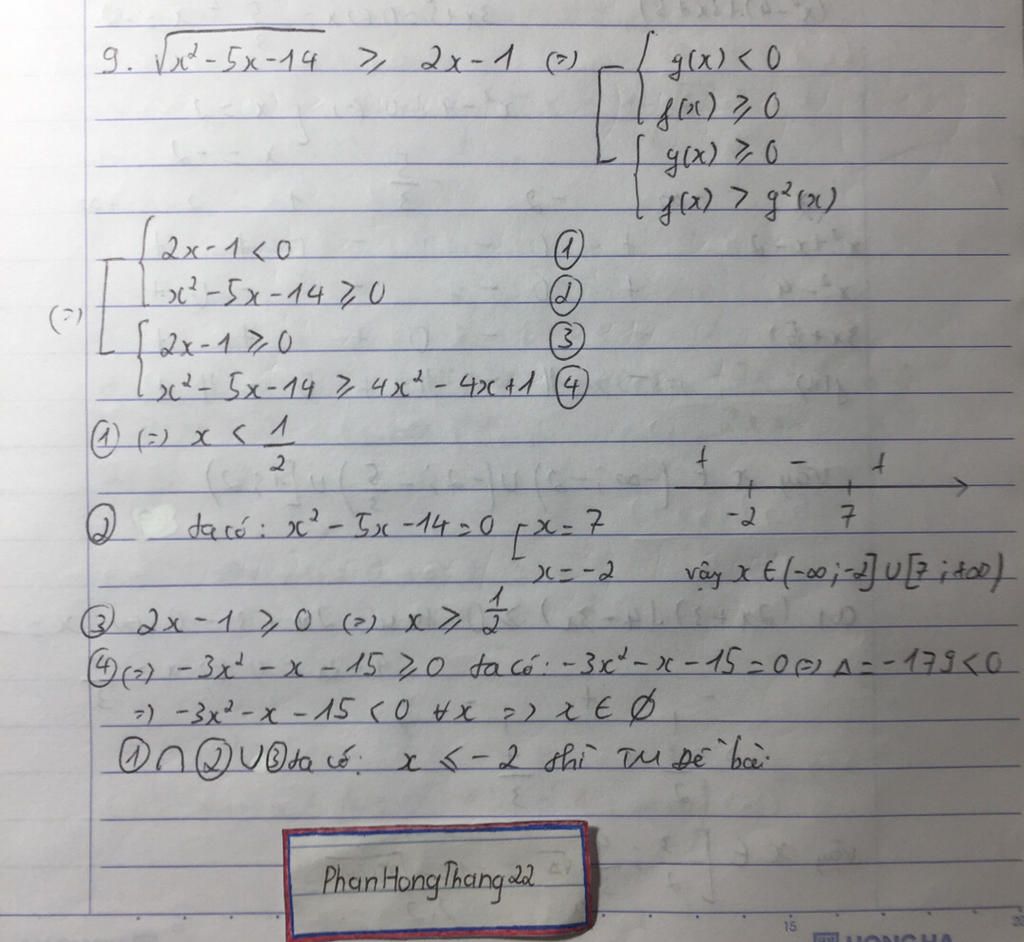 9. √(x² - 5x - 14) ≥ 2x - 1 (=) [ { g(x) < 0
f(x) ≥ 0
{ g(x) ≥ 0
f(x) > g²(x)
(=) [ { 2x - 1 < 0 ①
x² - 5x - 14 ≥ 0 ②
{ 2x - 1 ≥ 0 ③
x² - 5x - 14 ≥ 4x² - 4x + 1 ④
① (=) x < 1/2
+ - +
-2 7
② ta có: x² - 5x - 14 = 0 [ x = 7
x = -2 vậy x ∈ (-∞; -2] ∪ [7; +∞)
③ 2x - 1 ≥ 0 (=) x ≥ 1/2
④ (=) -3x² - x - 15 ≥ 0 ta có: -3x² - x - 15 = 0 (=) Δ = -179 < 0
=) -3x² - x - 15 < 0 ∀x => x ∈ Ø
① ∩ ② ∪ ③ ta có: x ≤ -2 thì TM Đề bài
PhanHongThang22
15
HONG HA